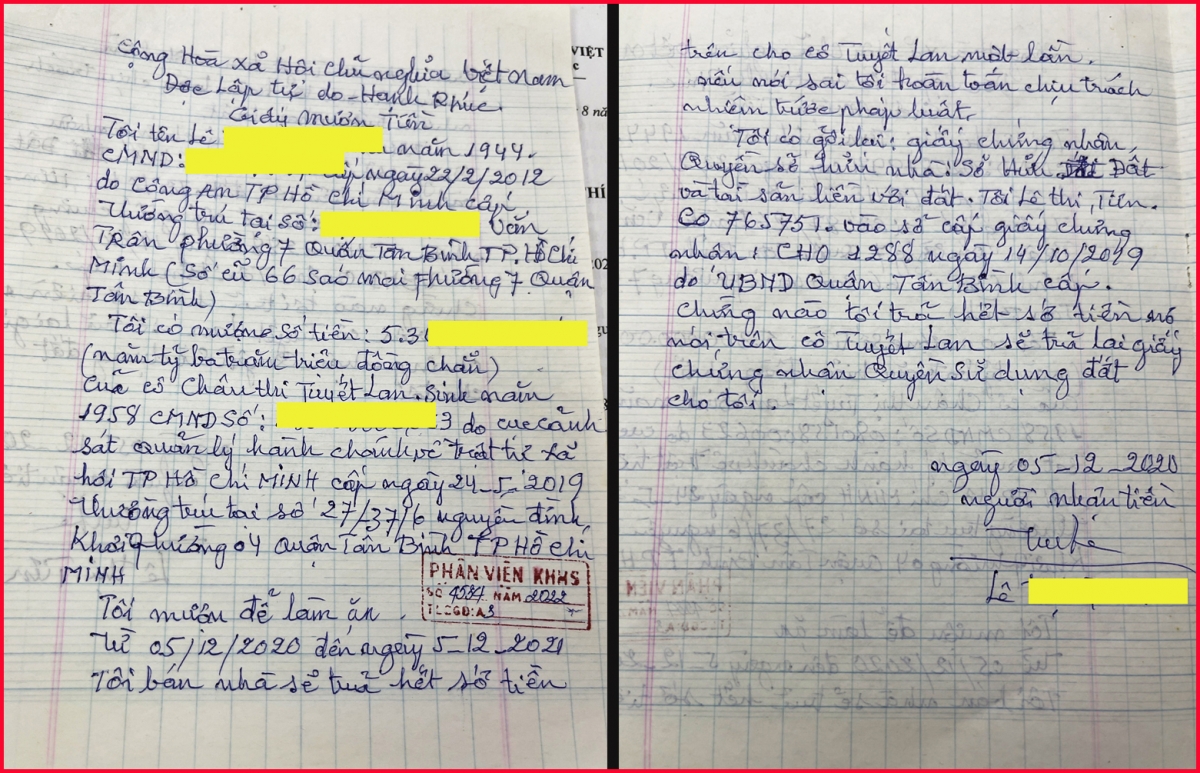 Cộng Hoà xả Hôi chủ nghiả Việt Nam
Độc Lập tự do - Hạnh Phúc.
Giấy mượn Tiền
Tôi tên Lê năm 1944.
CMND: cấp ngày 22/2/2012
do Công An TP Hồ Chí Minh cấp
Thường trú tại số: Văn
Trân phường 7 Quận Tân Bình TP. Hồ Chí
Minh (Số cũ 66 sao mai phường 7 Quận
Tân Bình)
Tôi có mượng số tiền: 5.3
(năm tỷ ba trăm triệu đồng chẳn)
Cuả cô Châu thi Tuyết Lan. Sinh năm
1958 CMND Số: 3 do cục cảnh
sát quản lý hành chánh về trật tự xã
hội TP Hồ Chí MINH cấp ngày 24_5_2019
Thường trú tại số 27/37/6 nguyễn đình
Khơi Phường 04 Quận Tân Bình TP Hồ Chí
MINH
PHÂN VIỆN KHHS
SỐ 4534 NĂM 2022
TLCGĐ: A3
Tôi mượn để làm ăn
Từ 05/12/2020 đến ngày 5_12_2021
Tôi bán nhà sẻ trả hết số tiền
VIỆT
8 nă
HÍ
trên cho cô Tuyết Lan một lần.
nếu nói sai tôi hoàn toàn chịu trách
nhiệm trước pháp luật.
Tôi có gởi lại: giấy chứng nhận,
Quyền sở hửu nhà: Sở Hửu Đất
và tài sản liền với đất. Tôi Lê thi Tiên.
CO 765751. vào số cấp giấy chứng
nhân: CHO 1288 ngày 14/10/2019
do UBND Quận Tân Bình cấp.
Chừng nào tôi trả hết số tiền nó
nói trên cô Tuyết Lan sẽ trả lại giấy
chứng nhận Quyền Sử dụng đất
cho tôi.
ngày 05_12_2020
người nhận tiền
Lê